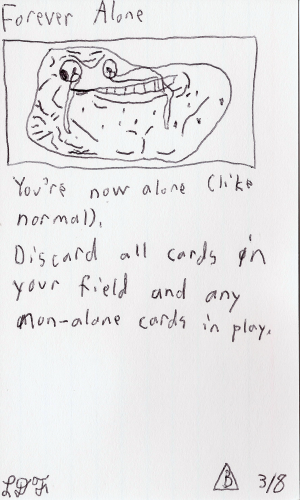 Forever Alone
You're now alone (like
normal).
Discard all cards in
your field and any
non-alone cards in play.
B 3/8